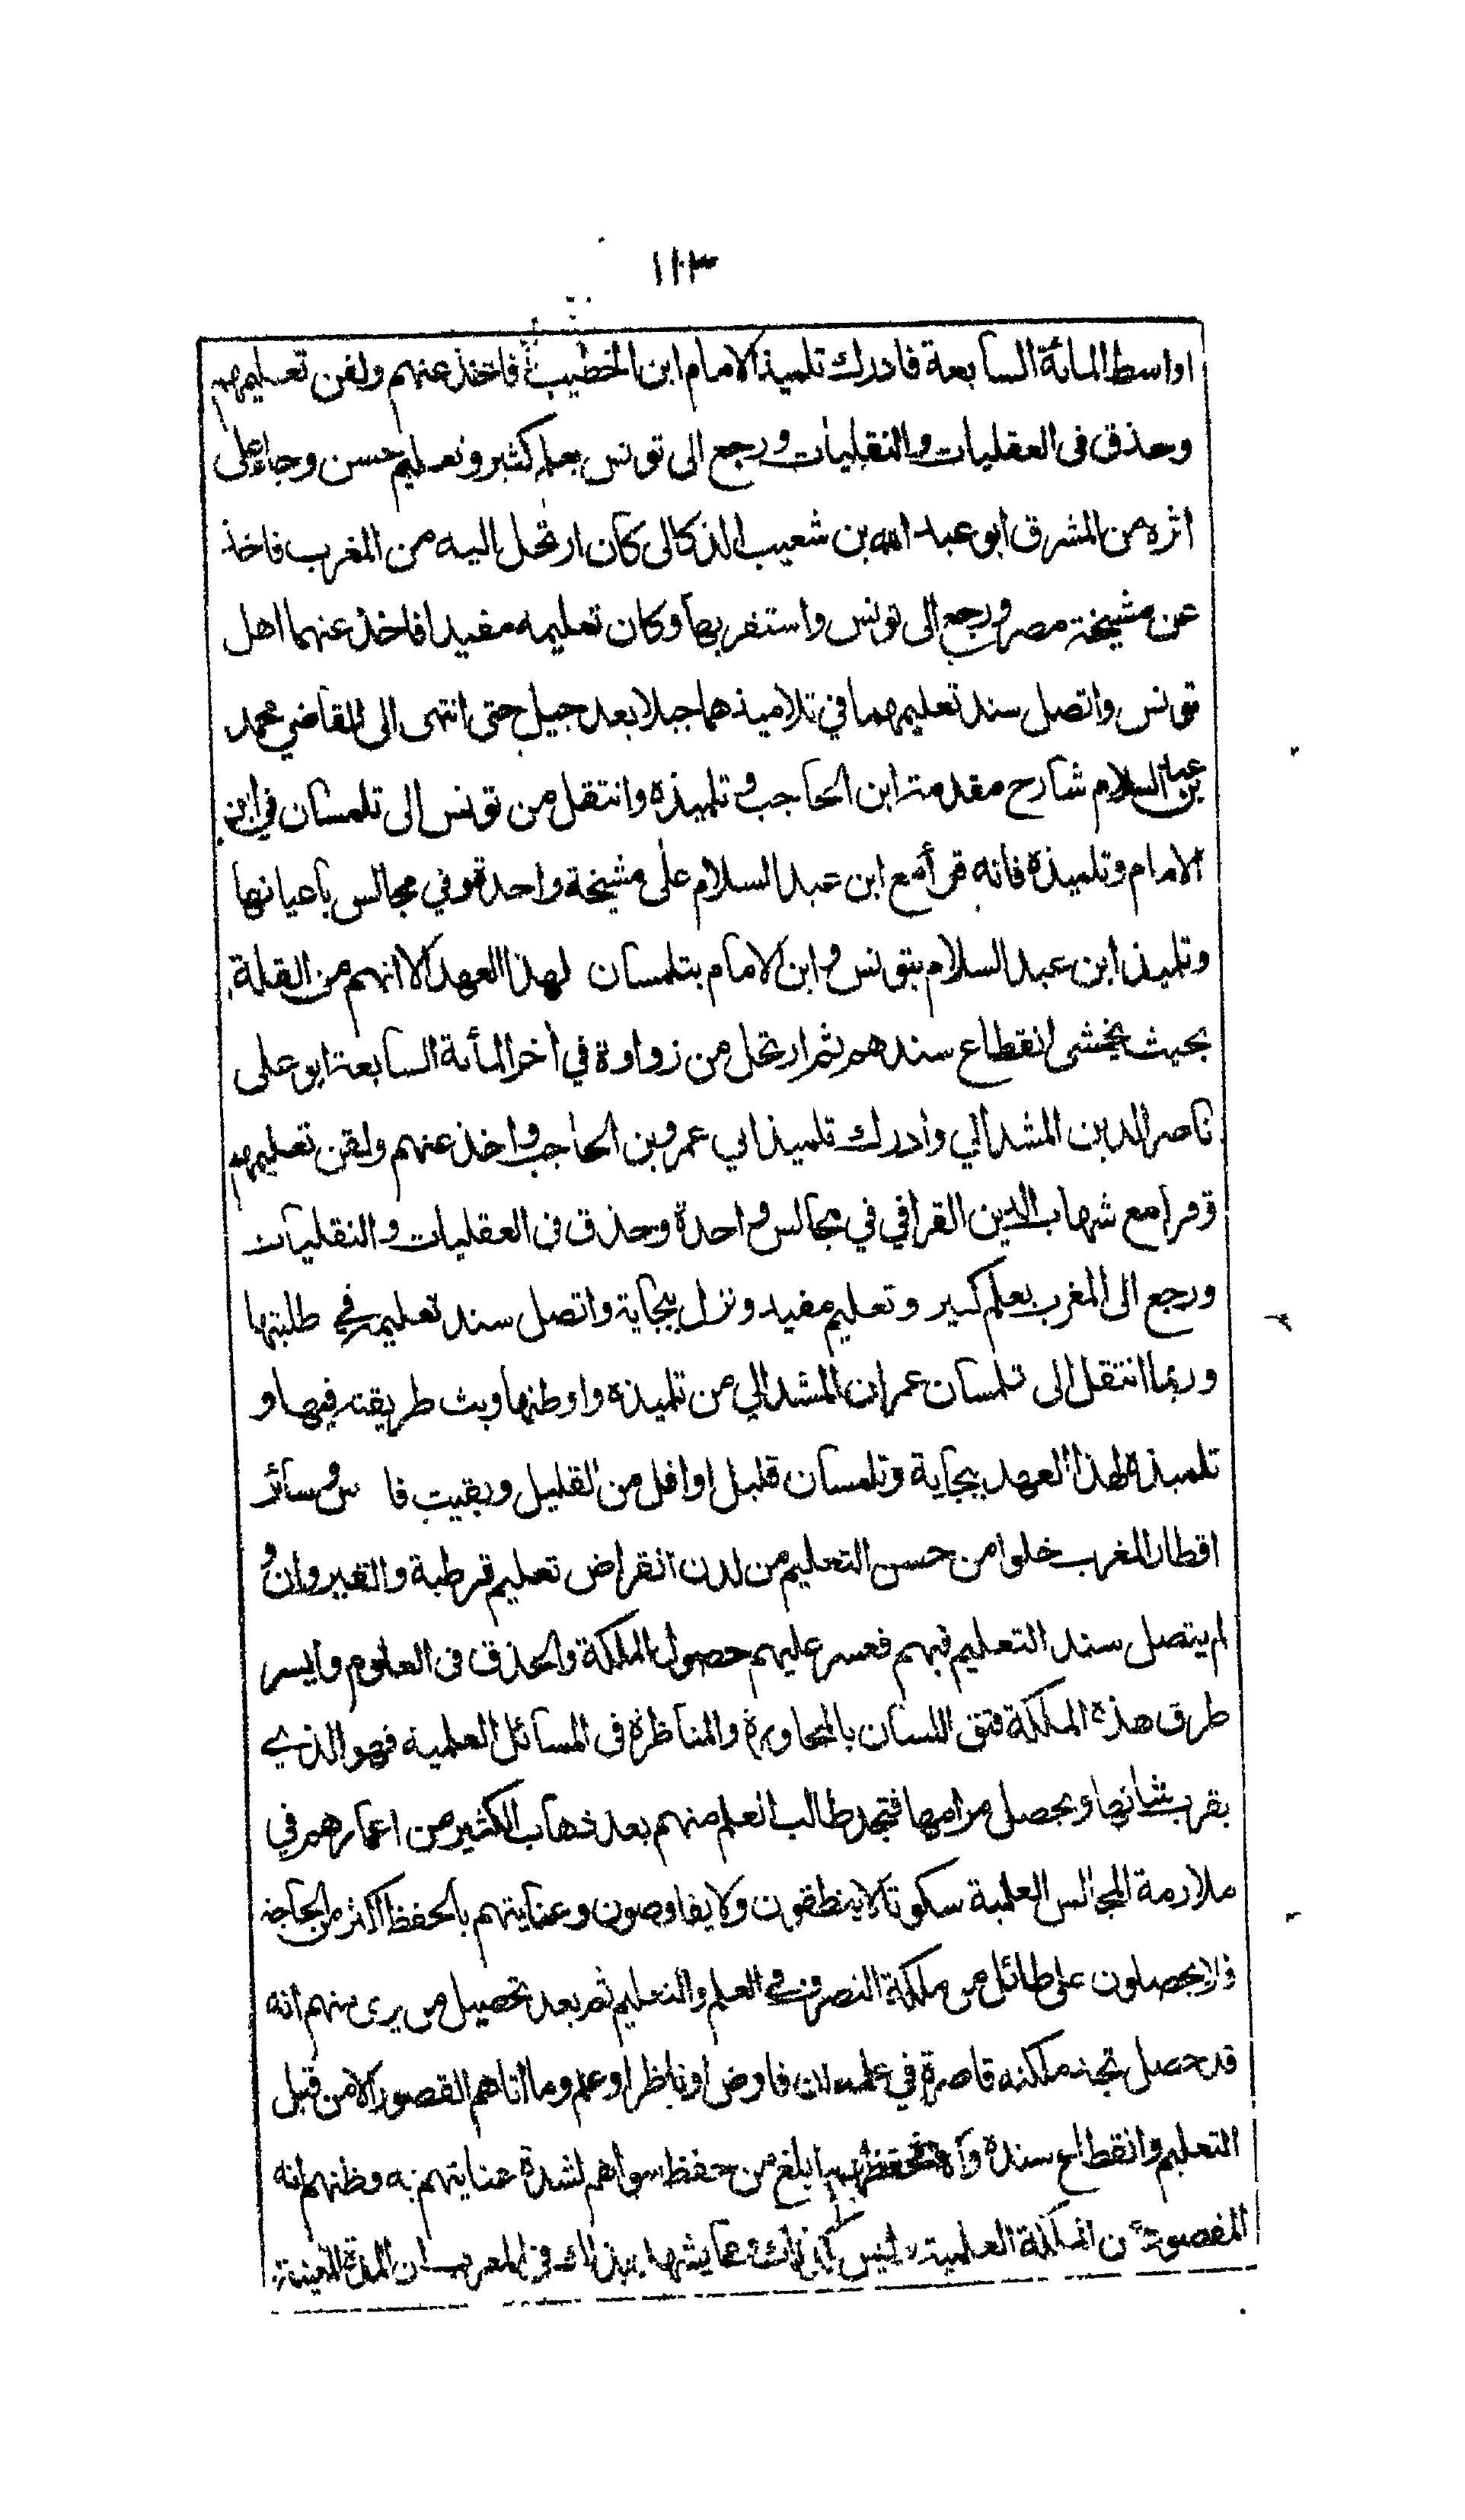 ١١٣
اواسط المائة السابعة فادرك تلميذ الامام ابن الخطيب فاخذ عنهم ولقن تعليمهم
وحذق فى العقليات والنقليات ورجع الى تونس بعلم كثير وتعليم حسن وجاء على
اثره من المشرق ابو عبد الله بن شعيب الدكالى كان ارتحل اليه من المغرب فاخذ
عن مشيخة مصر ورجع الى تونس واستقر بها وكان تعليمه مفيدا فاخذ عنهما اهل
تونس واتصل سند تعليمهما في تلاميذهما جيلا بعد جيل حتى انتهى الى القاضي محمد
بن عبد السلام شارح مقدمة ابن الحاجب و تلميذه وانتقل من تونس الى تلمسان في ابن
الامام وتلميذه فانه قرأ مع ابن عبد السلام على مشيخة واحدة وفي مجالس باعيانها
وتلميذ ابن عبد السلام بتونس وابن الامام بتلمسان لهذا العهد الا انهم من القلة
بحيث يخشى انقطاع سندهم ثم ارتحل من زواوة في اخر المأئة السابعة ابو على
ناصر الدين المشدالي وادرك تلميذ ابي عمرو بن الحاجب واخذ عنهم ولقن تعليمهم
وقرأ مع شهاب الدين القرافي في مجالس واحدة وحذق فى العقليات والنقليات
ورجع الى المغرب بعلم كبير وتعليم مفيد ونزل ببجاية واتصل سند تعليمه في طلبتها
وربما انتقل الى تلمسان عمران المشدالي من تلميذه واوطنها وبث طريقته فيها و
تلميذه لهذا العهد ببجاية وتلمسان قليل او اقل من القليل وبقيت فا س وسائر
اقطار المغرب خلوا من حسن التعليم من لدن انقراض تعليم قرطبة والقيروان و
لم يتصل سند التعليم فيهم فعسر عليهم حصول الملكة والحذق فى العلوم وايسر
طرق هذه الملكة فتق اللسان بالمحاورة والمناظرة فى المسائل العلمية فهو الذي
يقرب شانها ويحصل مرامها فتجد طالب العلم منهم بعد ذهاب الكثير من اعمارهم في
ملازمة المجالس العلمية سكوتا لا ينطقون ولا يفاوضون وعنايتهم بالحفظ اكثر من الحاجة
فلا يحصلون على طائل من ملكة التصرف في العلم والتعليم ثم بعد تحصيل من يرى منهم انه
قد حصل تجد ملكته قاصرة في علمه ان فاوض او ناظر او علم وما اتاهم القصور الا من قبل
التعليم وانقطاع سنده و ابلغ من حفظ سواهم لشدة عنايتهم به وظنهم انه
المقصود من الملكة العلمية وليس كذلك ومما يشهد بذلك فى المغرب ان المدة المعينة